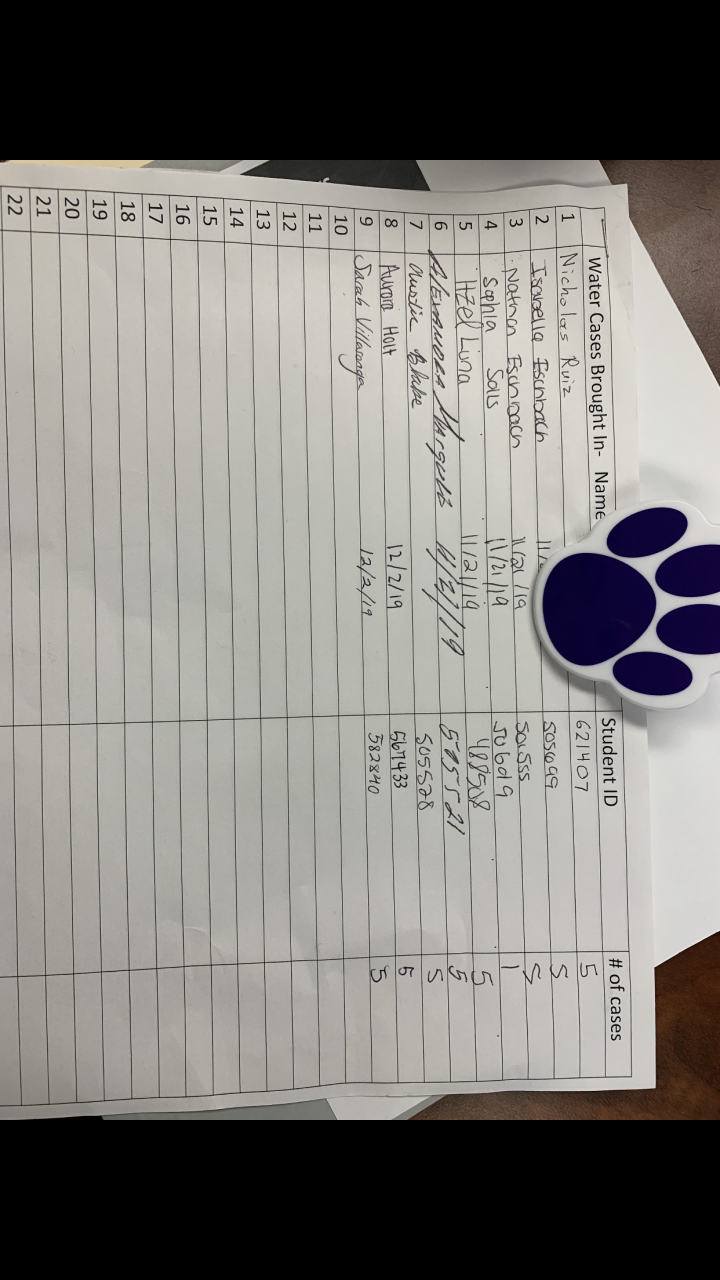 Water Cases Brought In- Name Student ID # of cases
1 Nicholas Ruiz 621407 5
2 Isabella Eschbach 11/2 505699 5
3 Nathan Eschbach 11/21/19 5
4 Sophia Solis 11/21/19 1
5 Itzel Luna 11/21/19 488508 5
6 Alexander Marquez 11/21/19 505521 5
7 Blake 505528 5
8 Aurora Holt 12/2/19 567433 5
9 Sarah Villaronga 12/2/19 582840 5
10
11
12
13
14
15
16
17
18
19
20
21
22